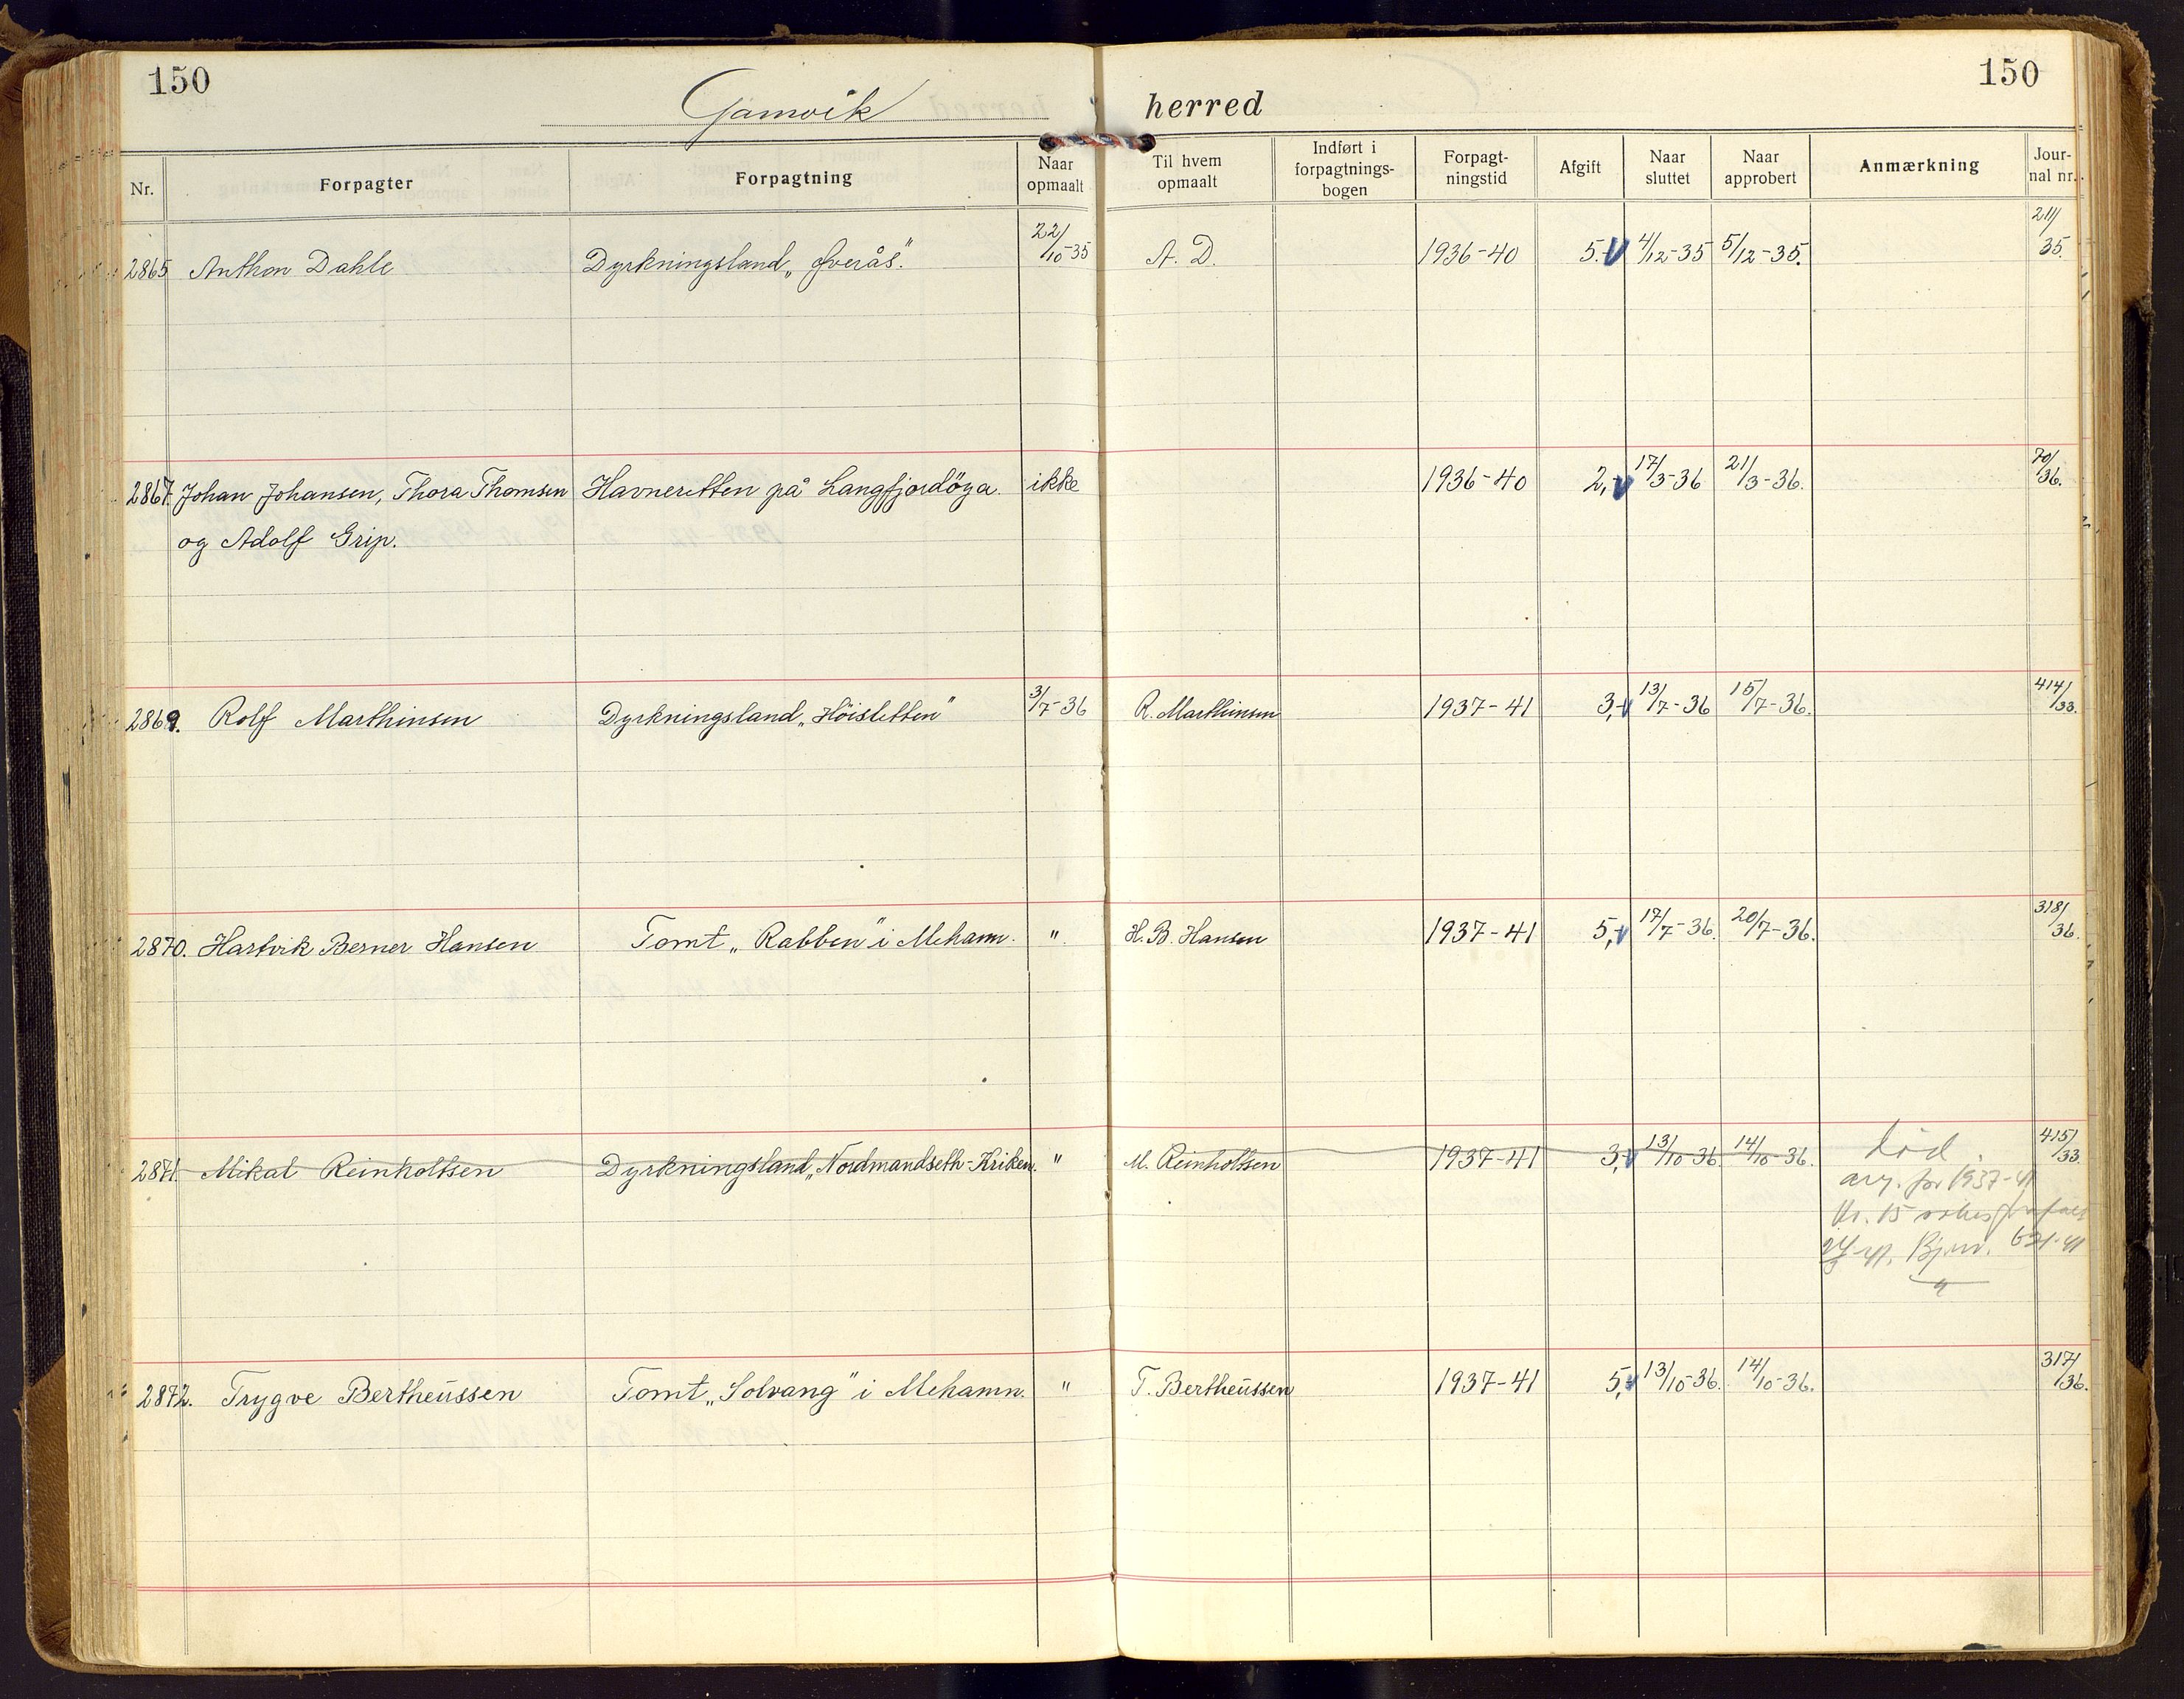 150
150
Gamvik herred
Nr. Forpagter Forpagtning Naar opmaalt Til hvem opmaalt Indført i forpagtnings-bogen Forpagt-ningstid Afgift Naar sluttet Naar approbert Anmærkning Jour-nal nr.
2865 Anthon Dahle Dyrkningsland „Øverås". 22/10-35 A. D. 1936-40 5.- 4/12-35 5/12-35. 211/35.
2867. Johan Johansen, Thora Thomsen Havneretten på Langfjordöya. ikke 1936-40 2,- 17/3-36 21/3-36. 70/36.
og Adolf Grip.
2869. Rolf Marthinsen Dyrkningsland „Höisletten" 3/7-36 R. Marthinsen 1937-41 3,- 13/7-36 15/7-36. 414/33.
2870. Hartvik Berner Hansen Tomt „Rabben" i Mehamn. " H. B. Hansen 1937-41 5,- 17/7-36. 20/7-36. 318/36.
2871. Mikal Reinholtsen Dyrkningsland „Nordmandseth-Kriken. " M. Reinholtsen 1937-41 3,- 13/10-36 14/10-36. død. 415/33.
for 1937-41
kr. 15
621-41
2872. Trygve Bertheüssen Tomt „Solvang" i Mehamn. " T. Bertheüssen 1937-41 5,- 13/10-36. 14/10-36. 317/36.